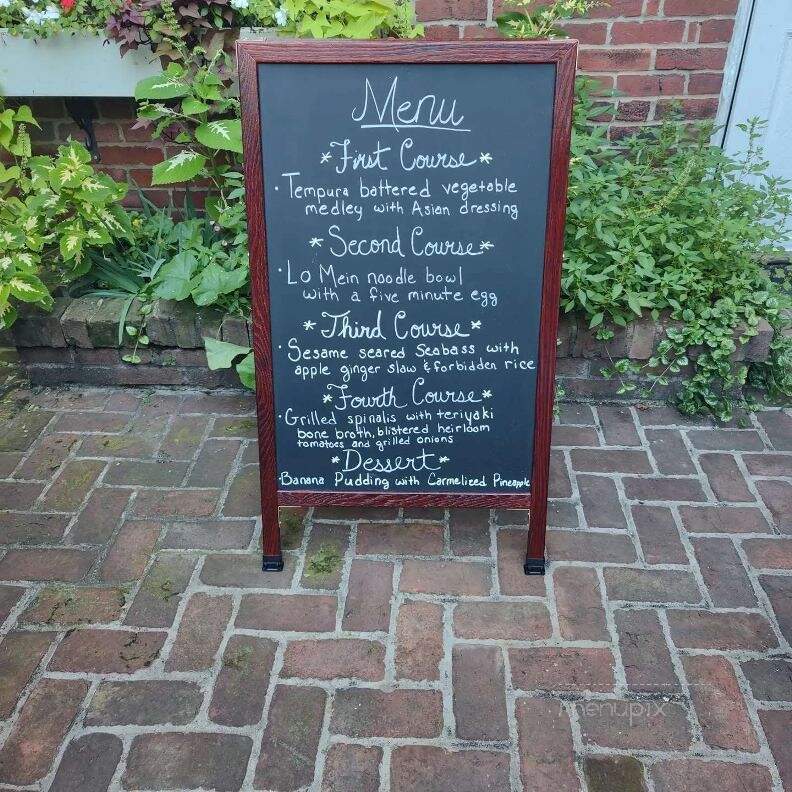 Menu
*First Course*
• Tempura battered vegetable
medley with Asian dressing
*Second Course*
• Lo Mein noodle bowl
with a five minute egg
*Third Course*
• Sesame seared Seabass with
apple ginger slaw & forbidden rice
*Fourth Course*
• Grilled spinalis with teriyaki
bone broth, blistered heirloom
tomatoes and grilled onions
*Dessert*
• Banana Pudding with Carmelized Pineapple
menupix